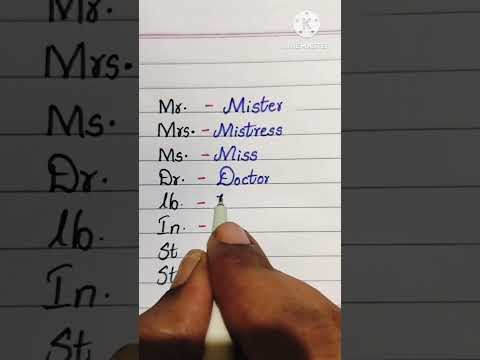 Mr. - Mister
Mrs. - Mistress
Ms. - Miss
Dr. - Doctor
lb. -
In. -
St
St
Mrs.
Ms.
Dr.
lb.
In.
St